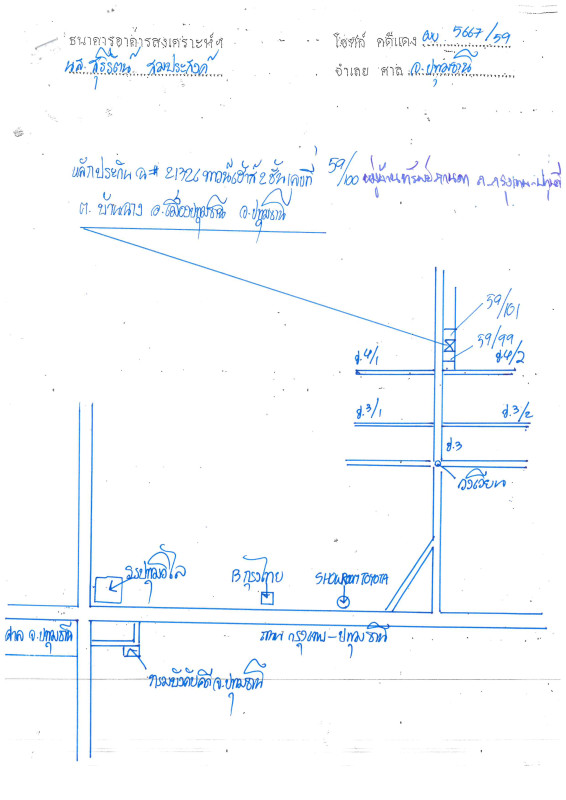 ธนาคารอาคารสงเคราะห์ฯ โจทก์ คดีแดง ผบ. 5667/59
น.ส. สุริรัตน์ สมประสงค์ จำเลย ศาล จ.ปทุมธานี
หลักประกัน ฉ# 21726 ทาวน์เฮ้าส์ 2 ชั้น เลขที่ 59/100 หมู่บ้าน ถ.กรุงเทพ-ปทุมธานี
ต. บ้านฉาง อ.เมืองปทุมธานี จ.ปทุมธานี
59/101
59/99
ซ.4/1 ซ.4/2
ซ.3/1 ซ.3/2
ซ.3
วงเวียน
รร.ปทุมวิไล B กรุงไทย SHOWROOM TOYOTA
ศาล จ.ปทุมธานี ถนน กรุงเทพ-ปทุมธานี
กรมบังคับคดี จ.ปทุมธานี